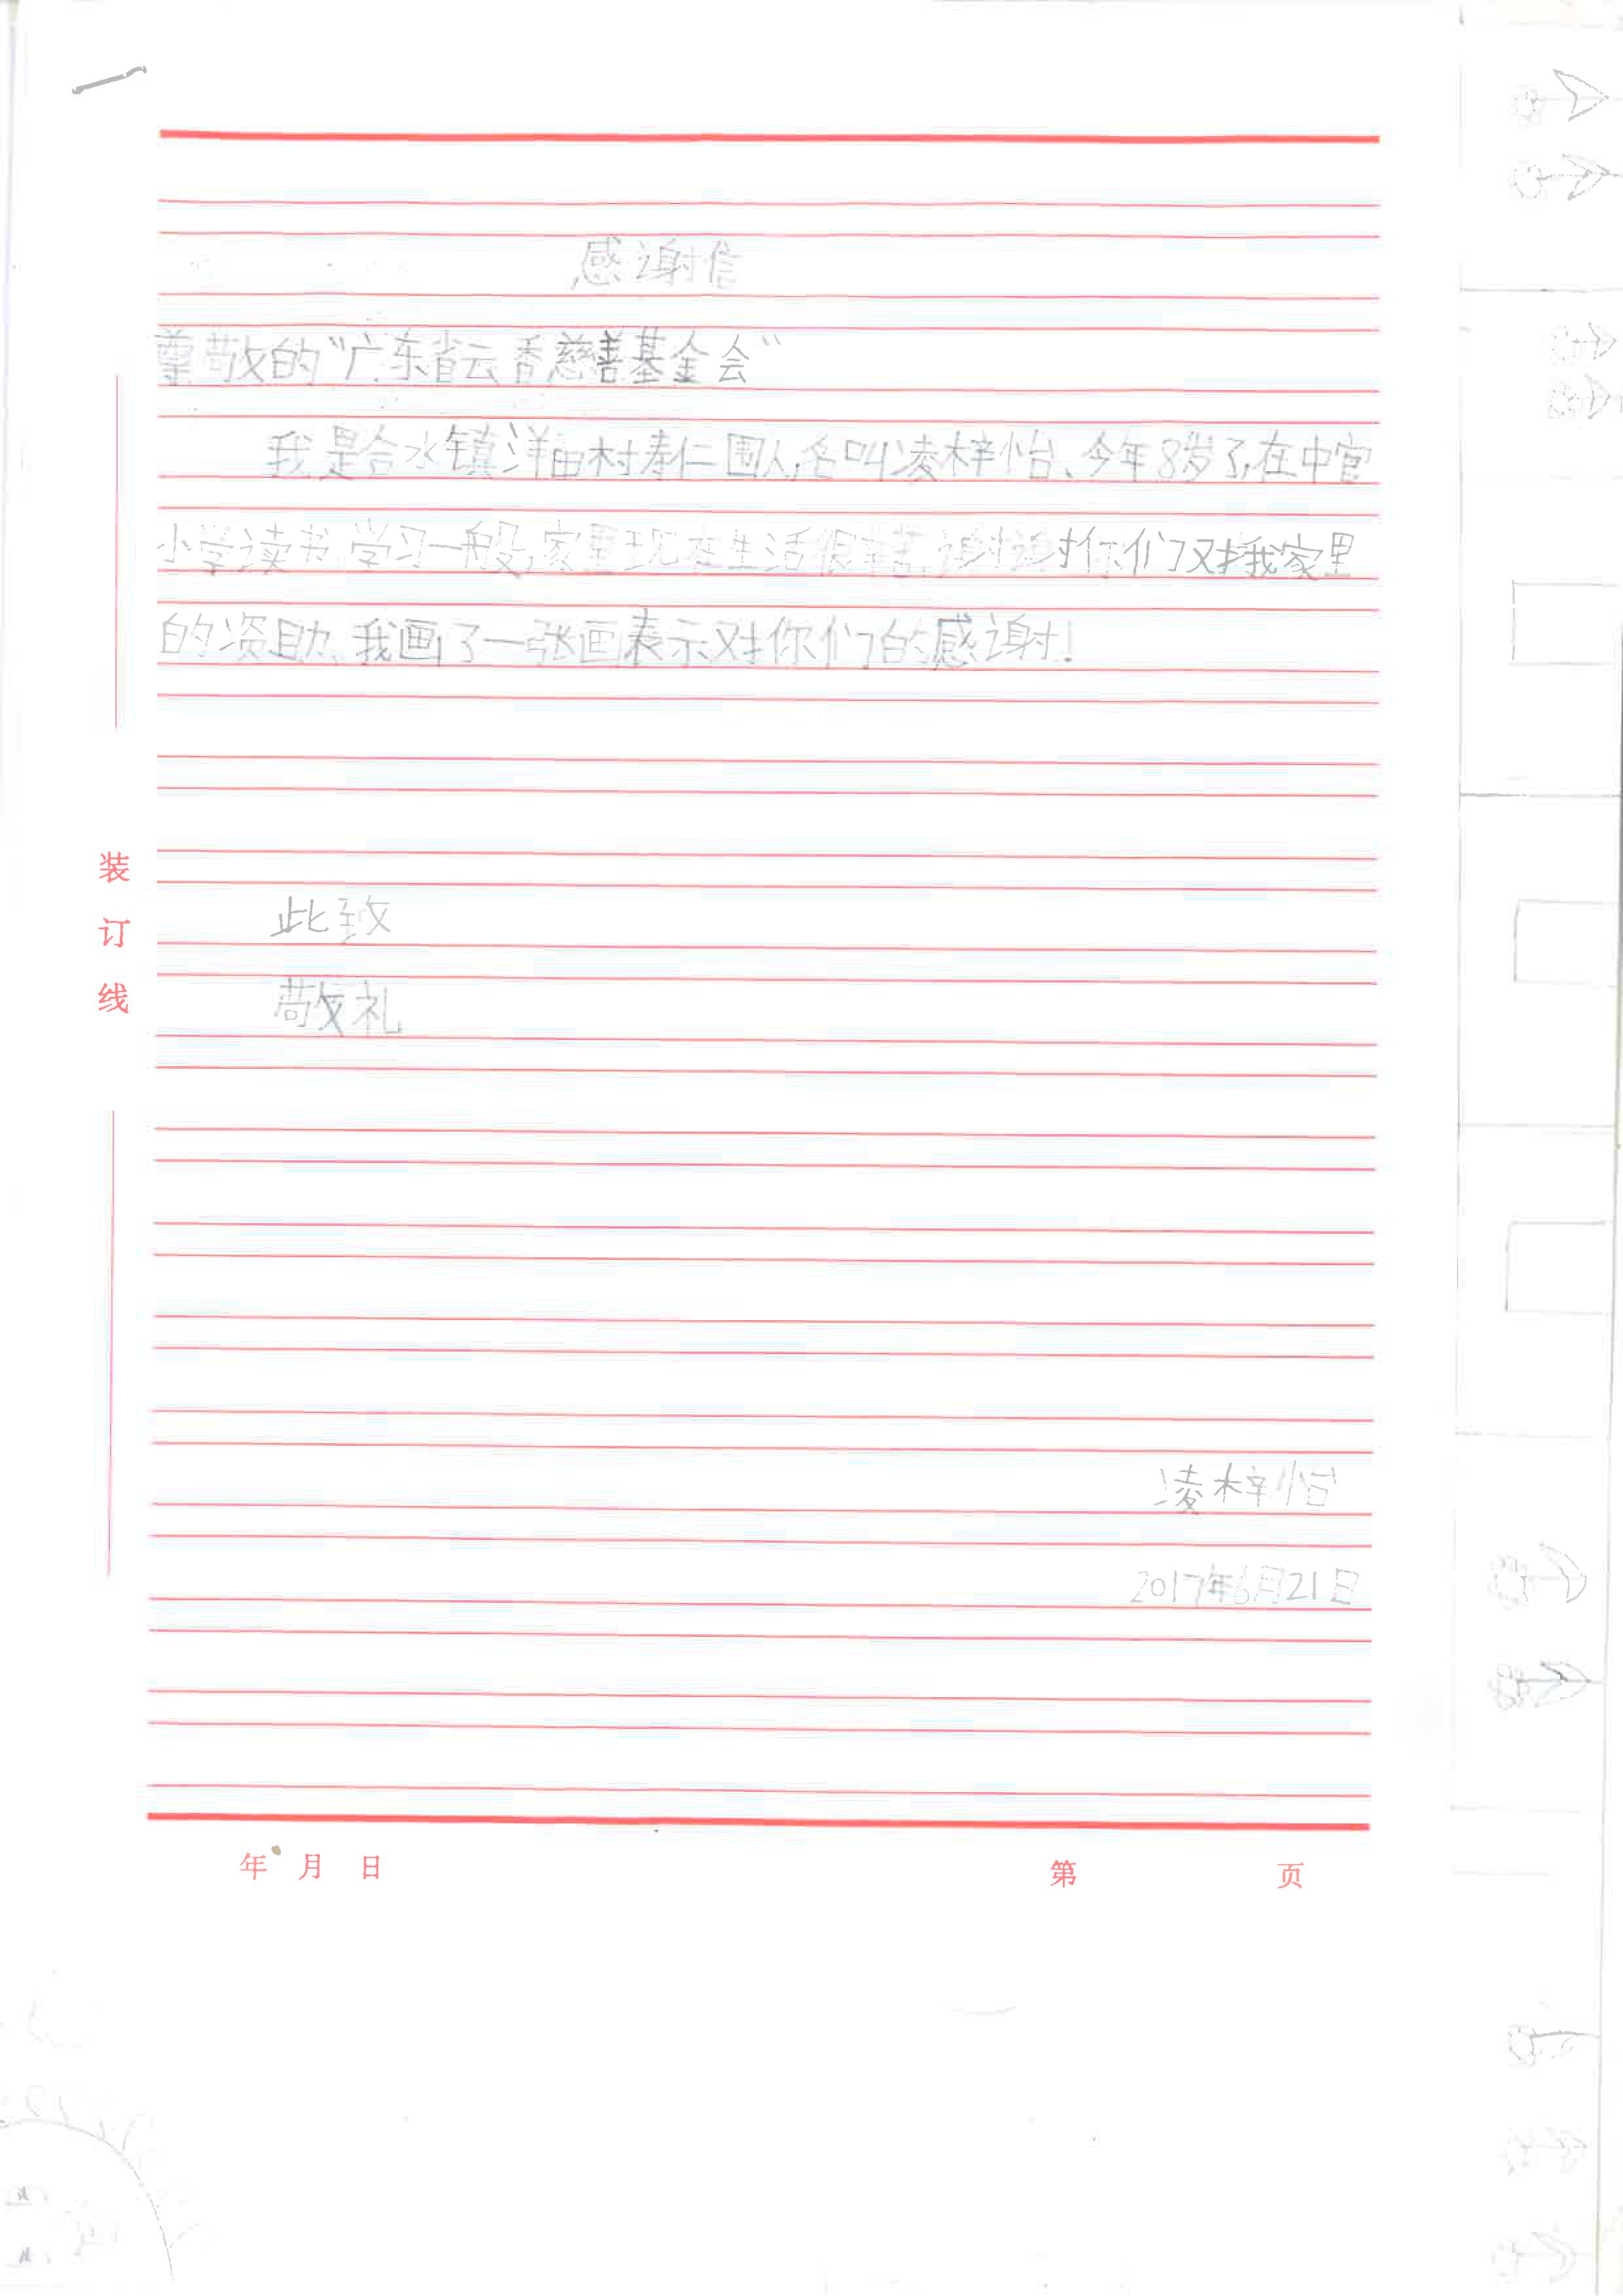 感谢信
尊敬的“广东省云香慈善基金会“
我是合水镇洋田村寿仁围人,名叫凌梓怡、今年8岁了,在中官
小学读书,学习一般,家里现在生活很辛苦,谢谢你们对我家里
的资助、我画了一张画表示对你们的感谢!
此致
敬礼
凌梓怡
2017年6月21日
装
订
线
年 月 日
第 页